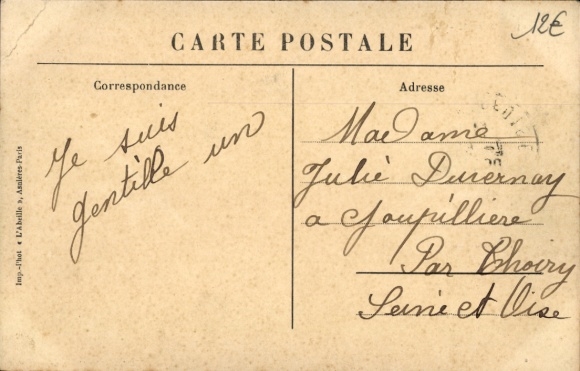 12€
CARTE POSTALE
Correspondance
Adresse
Je suis
gentille un
Madame
Julie Duvernay
a Goupillière
Par Thoiry
Seine et Oise
Imp.-Phot « L'Abeille », Asnières-Paris